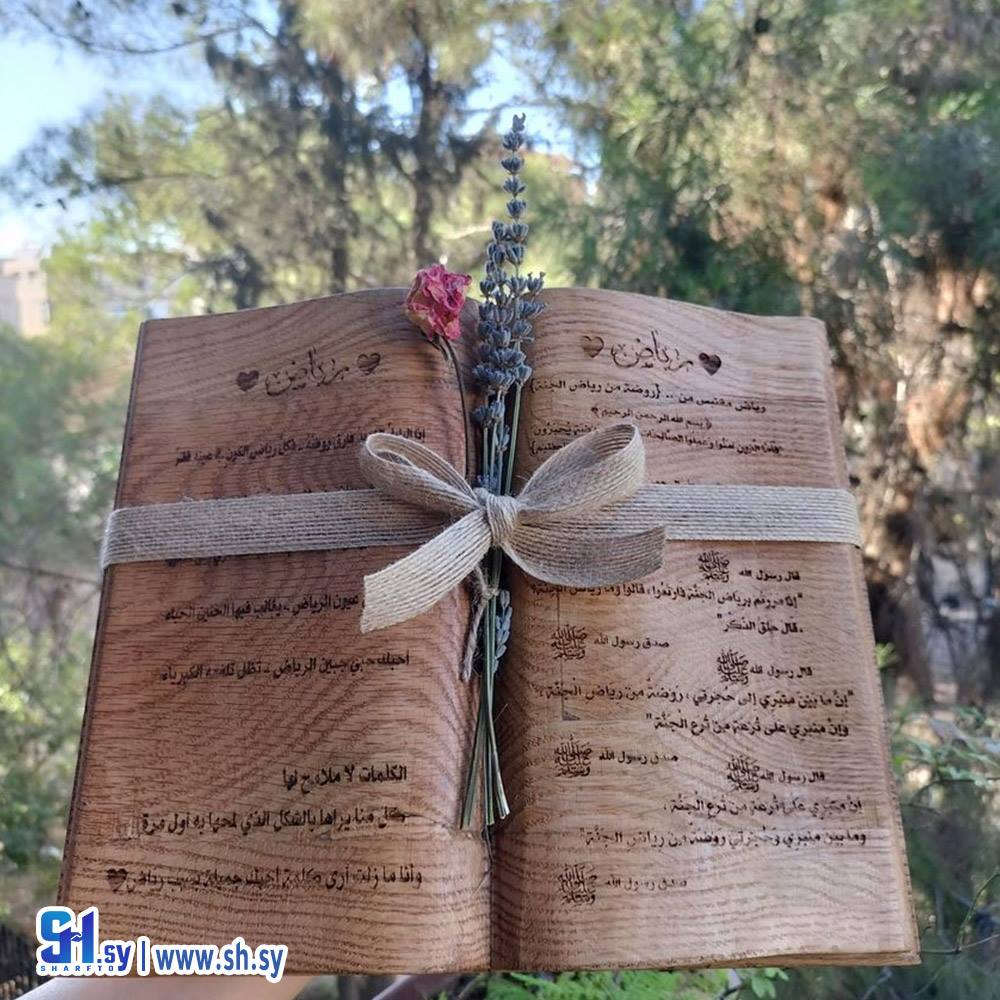 رياض
رياض مقتبس من .. {روضة من رياض الجنة}
﴿ بسم الله الرحمن الرحيم ﴾
"فأما الذين آمنوا وعملوا الصالحات
قال رسول الله ﷺ
"إذا مررتم برياض الجنّة فارتعوا، قالوا وما رياض الجنة؟
قال حلق الذكر"
صدق رسول الله ﷺ
قال رسول الله ﷺ
"إنّ ما بين منبري إلى حجرتي ، روضةٌ من رياض الجنّة ،
وإنّ منبري على تُرعة من تُرع الجنّة"
صدق رسول الله ﷺ
قال رسول الله ﷺ
إنّ منبري على تُرعة من تُرع الجنّة ،
وما بين منبري وحُجرتي روضة من رياض الجنّة"
صدق رسول الله ﷺ
رياض
روضة .. فكل رياض الكون في عينه قفر
عيون الرياض .. يغالب فيها الحنين الحياء
أحبك حتى جبين الرياض .. تظل تلفعه الكبرياء
الكلمات لا ملامح لها
كل منا يراها بالشكل الذي لمحها به أول مرة
وأنا ما زلت أرى كلمة أحبك جميلة بسبب رياض
SH.sy | www.sh.sy
SHARFTO